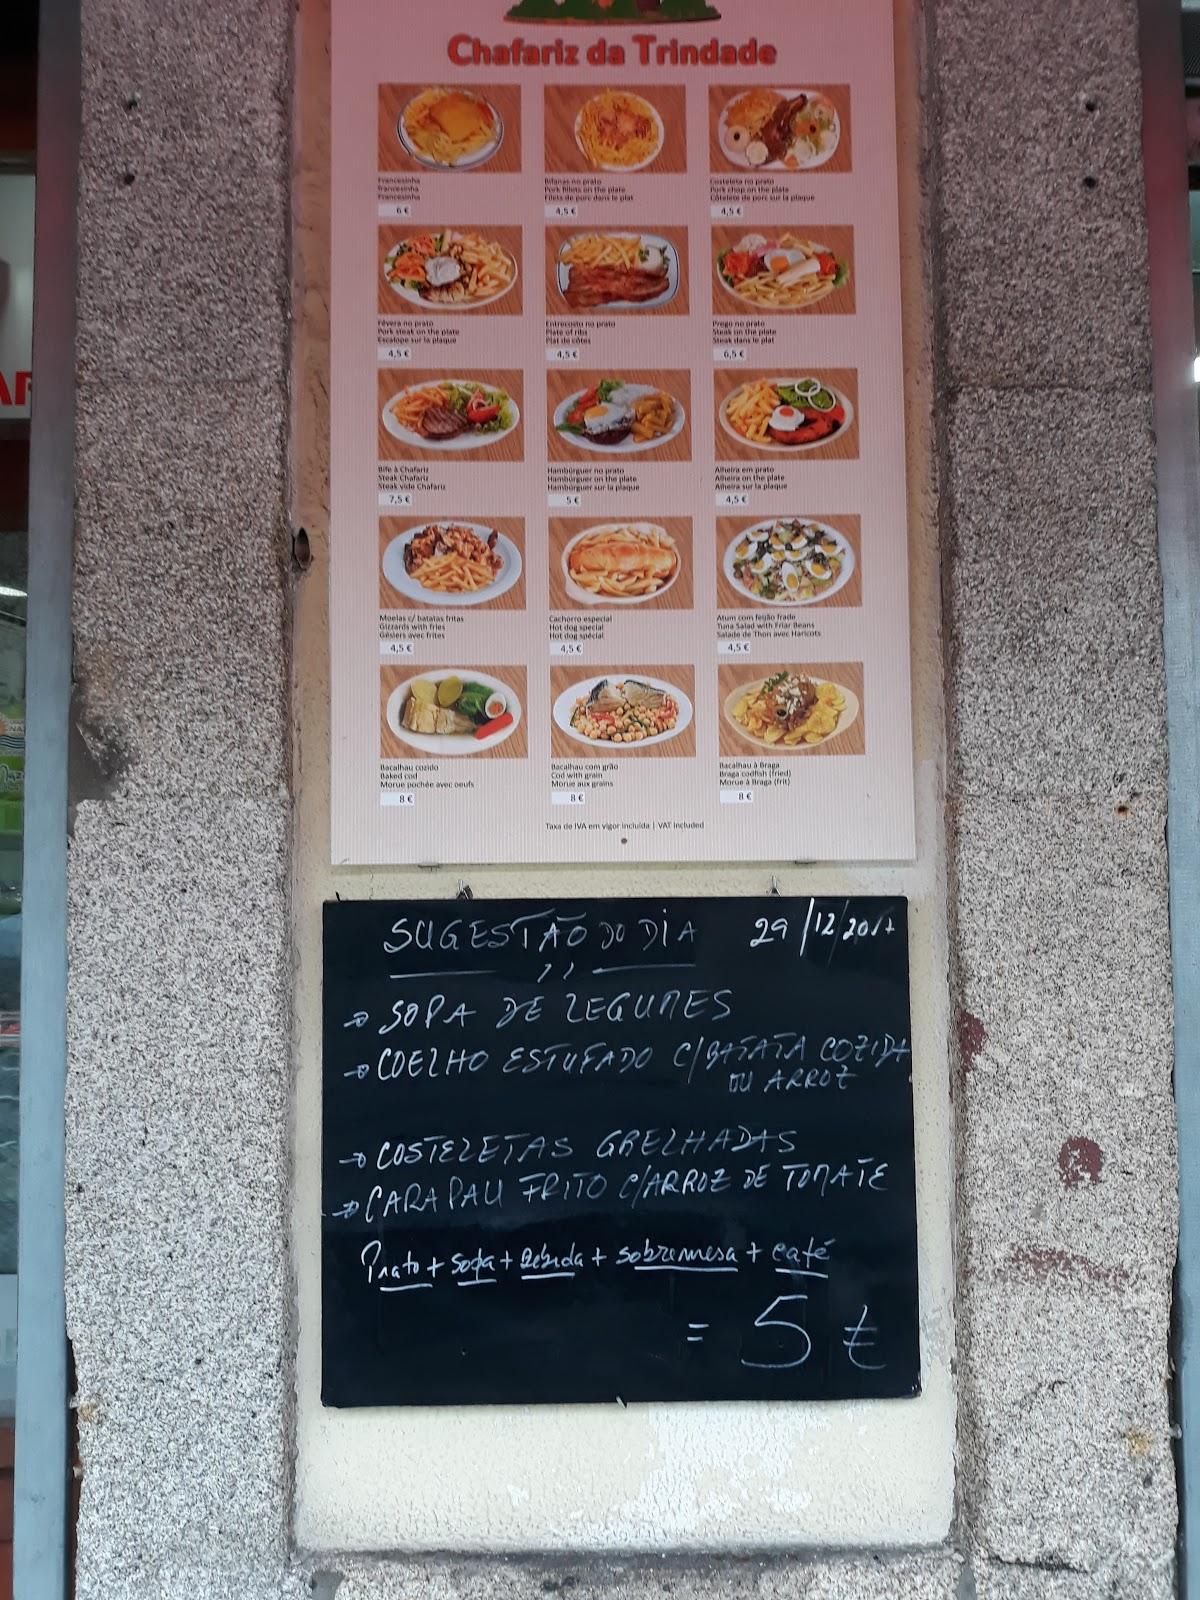 Chafariz da Trindade
Francesinha
Francesinha
Francesinha
6 €
Bifanas no prato
Pork fillets on the plate
Filets de porc dans le plat
4,5 €
Costeleta no prato
Pork chop on the plate
Côtelete de porc sur la plaque
4,5 €
Fêvera no prato
Pork steak on the plate
Escalope sur la plaque
4,5 €
Entrecosto no prato
Plate of ribs
Plat de côtes
4,5 €
Prego no prato
Steak on the plate
Steak dans le plat
6,5 €
Bife à Chafariz
Steak Chafariz
Steak vide Chafariz
7,5 €
Hambúrguer no prato
Hambúrguer on the plate
Hambúrguer sur la plaque
5 €
Alheira em prato
Alheira on the plate
Alheira sur la plaque
4,5 €
Moelas c/ batatas fritas
Gizzards with fries
Gésiers avec frites
4,5 €
Cachorro especial
Hot dog special
Hot dog spécial
4,5 €
Atum com feijão frade
Tuna Salad with Friar Beans
Salade de Thon avec Haricots
4,5 €
Bacalhau cozido
Baked cod
Morue pochée avec oeufs
8 €
Bacalhau com grão
Cod with grain
Morue aux grains
8 €
Bacalhau à Braga
Braga codfish (fried)
Morue à Braga (frit)
8 €
Taxa de IVA em vigor incluída | VAT included
SUGESTÃO DO DIA 29/12/2017
→ SOPA DE LEGUMES
→ COELHO ESTUFADO C/BATATA COZIDA
OU ARROZ
→ COSTELETAS GRELHADAS
→ CARAPAU FRITO C/ARROZ DE TOMATE
Prato + sopa + Bebida + sobremesa + café
= 5 €